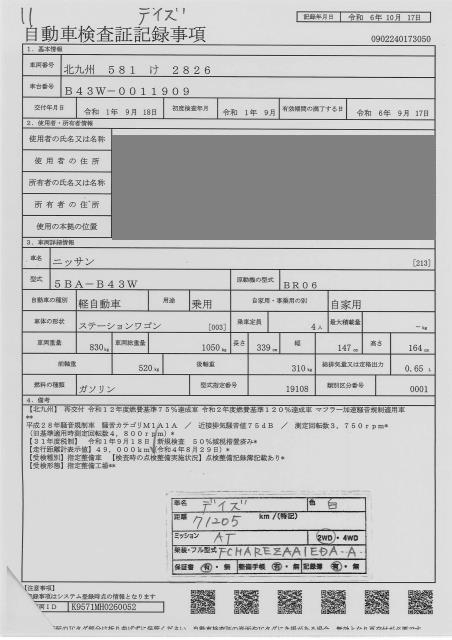 11 デイズ
自動車検査証記録事項
記録年月日 令和 6年10月 17日
0902240173050
1．基本情報
車両番号 北九州 581 け 2826
車台番号 B43W-0011909
交付年月日 令和 1年 9月 18日 初度検査年月 令和 1年 9月 有効期間の満了する日 令和 6年 9月 17日
2．使用者・所有者情報
使用者の氏名又は名称
使用者の住所
所有者の氏名又は名称
所有者の住所
使用の本拠の位置
3．車両詳細情報
車名 ニッサン [213]
型式 5BA-B43W 原動機の型式 BR06
自動車の種別 軽自動車 用途 乗用 自家用・事業用の別 自家用
車体の形状 ステーションワゴン [003] 乗車定員 4人 最大積載量 -kg
車両重量 830kg 車両総重量 1050kg 長さ 339cm 幅 147cm 高さ 164cm
前軸重 520kg 後軸重 310kg 総排気量又は定格出力 0.65 L
燃料の種類 ガソリン 型式指定番号 19108 類別区分番号 0001
4．備考
【北九州】 再交付 令和12年度燃費基準75%達成車 令和2年度燃費基準120%達成車 マフラー加速騒音規制適用車
**
平成28年騒音規制車 騒音カテゴリM1A1A ／ 近接排気騒音値75dB ／ 測定回転数3，750rpm*
（旧基準適用時測定回転数4，800rpm）*
【31年度税制】 令和1年9月18日 新規検査 50%減税措置済み*
【走行距離計表示値】49，000km（令和4年8月29日）*
【受検種別】指定整備車 【検査時の点検整備実施状況】点検整備記録簿記載あり*
【受検形態】指定整備工場**
車名 デイズ 色 白
距離 71205 km /（特記）
ミッション AT 2WD・4WD
架装・フル型式 FCHAREZAA1EDA-A
保証書 有・無 整備手帳 有・無 記録簿 有・無
【注意事項】
記録事項はシステム登録時点の情報となります
K9571MH0260052